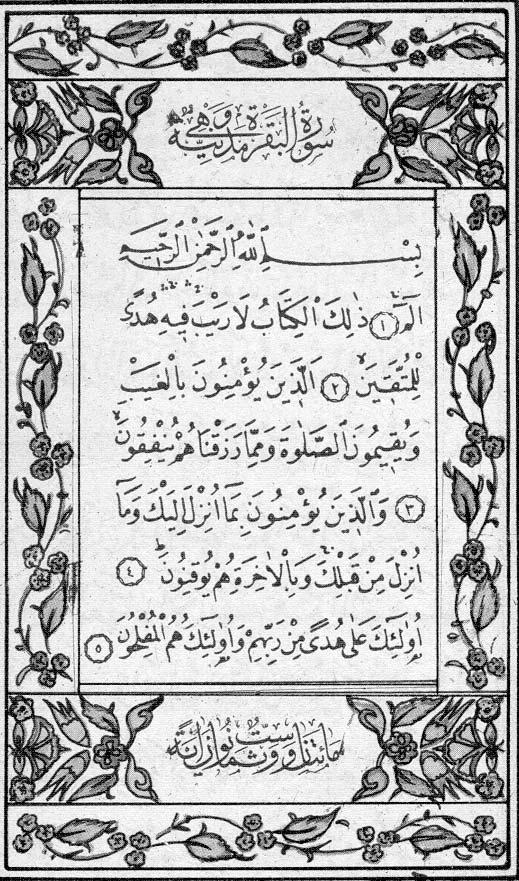 سُورَةُ الْبَقَرَةِ وَهِيَ مَدَنِيَّةٌ
بِسْمِ اللّٰهِ الرَّحْمٰنِ الرَّحِيمِ
الٓمٓ ۝١ ذٰلِكَ الْكِتَابُ لَا رَيْبَ فِيهِ هُدًى
لِلْمُتَّقِينَ ۝٢ اَلَّذِينَ يُؤْمِنُونَ بِالْغَيْبِ
وَيُقِيمُونَ الصَّلٰوةَ وَمِمَّا رَزَقْنَاهُمْ يُنْفِقُونَ
۝٣ وَالَّذِينَ يُؤْمِنُونَ بِمَا اُنْزِلَ اِلَيْكَ وَمَا
اُنْزِلَ مِنْ قَبْلِكَ وَبِالْاٰخِرَةِ هُمْ يُوقِنُونَ ۝٤
اُولٰئِكَ عَلٰى هُدًى مِنْ رَبِّهِمْ وَاُولٰئِكَ هُمُ الْمُفْلِحُونَ ۝٥
مائتان وست وثمانون اية